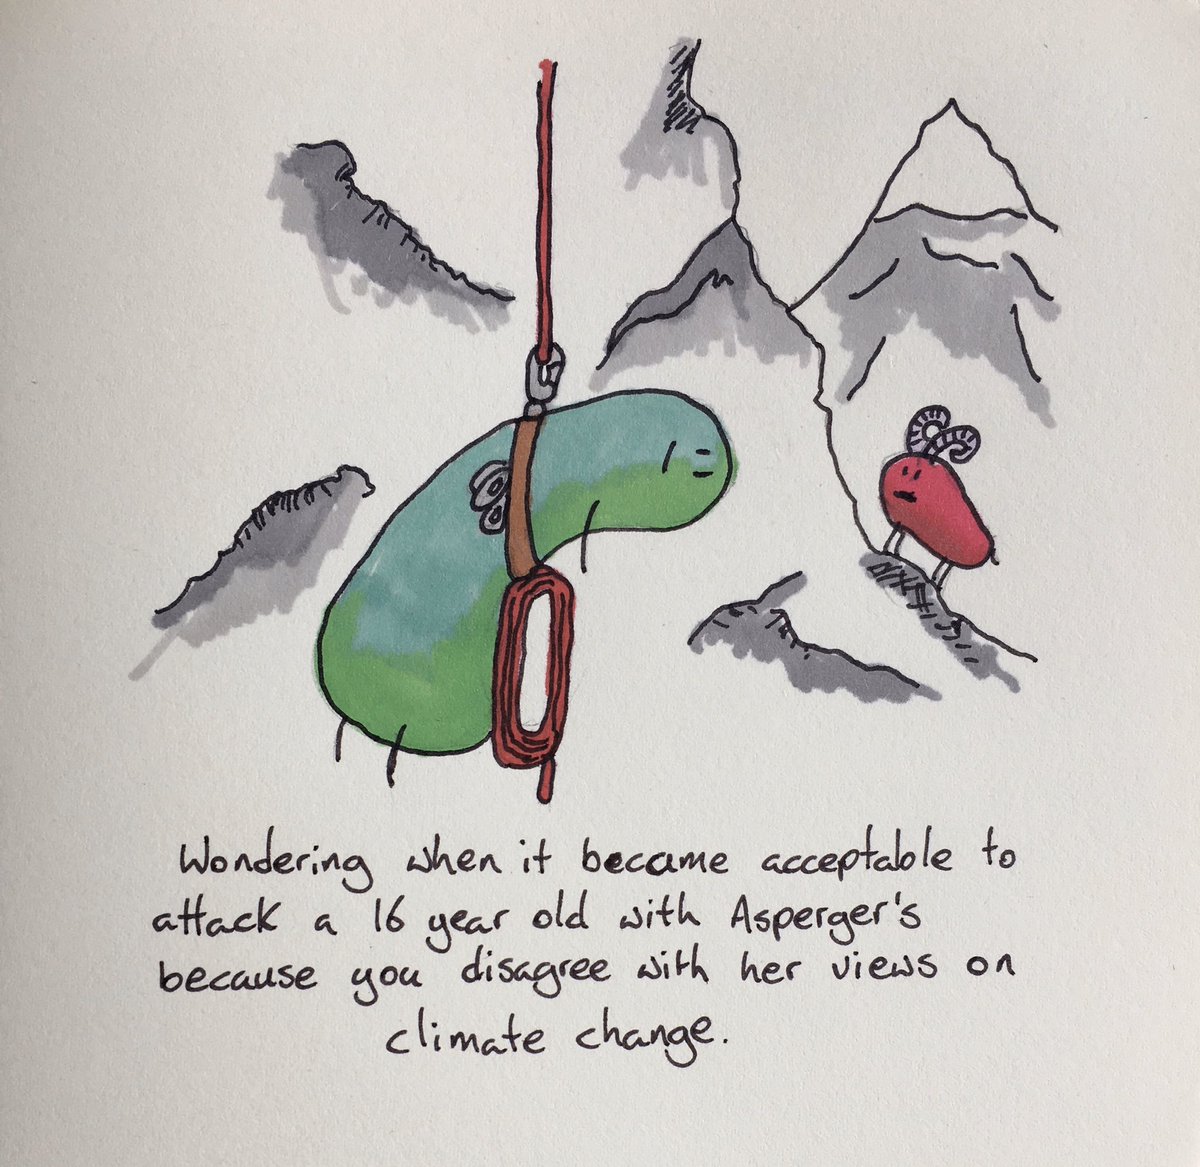 Wondering when it became acceptable to
attack a 16 year old with Asperger's
because you disagree with her views on
climate change.